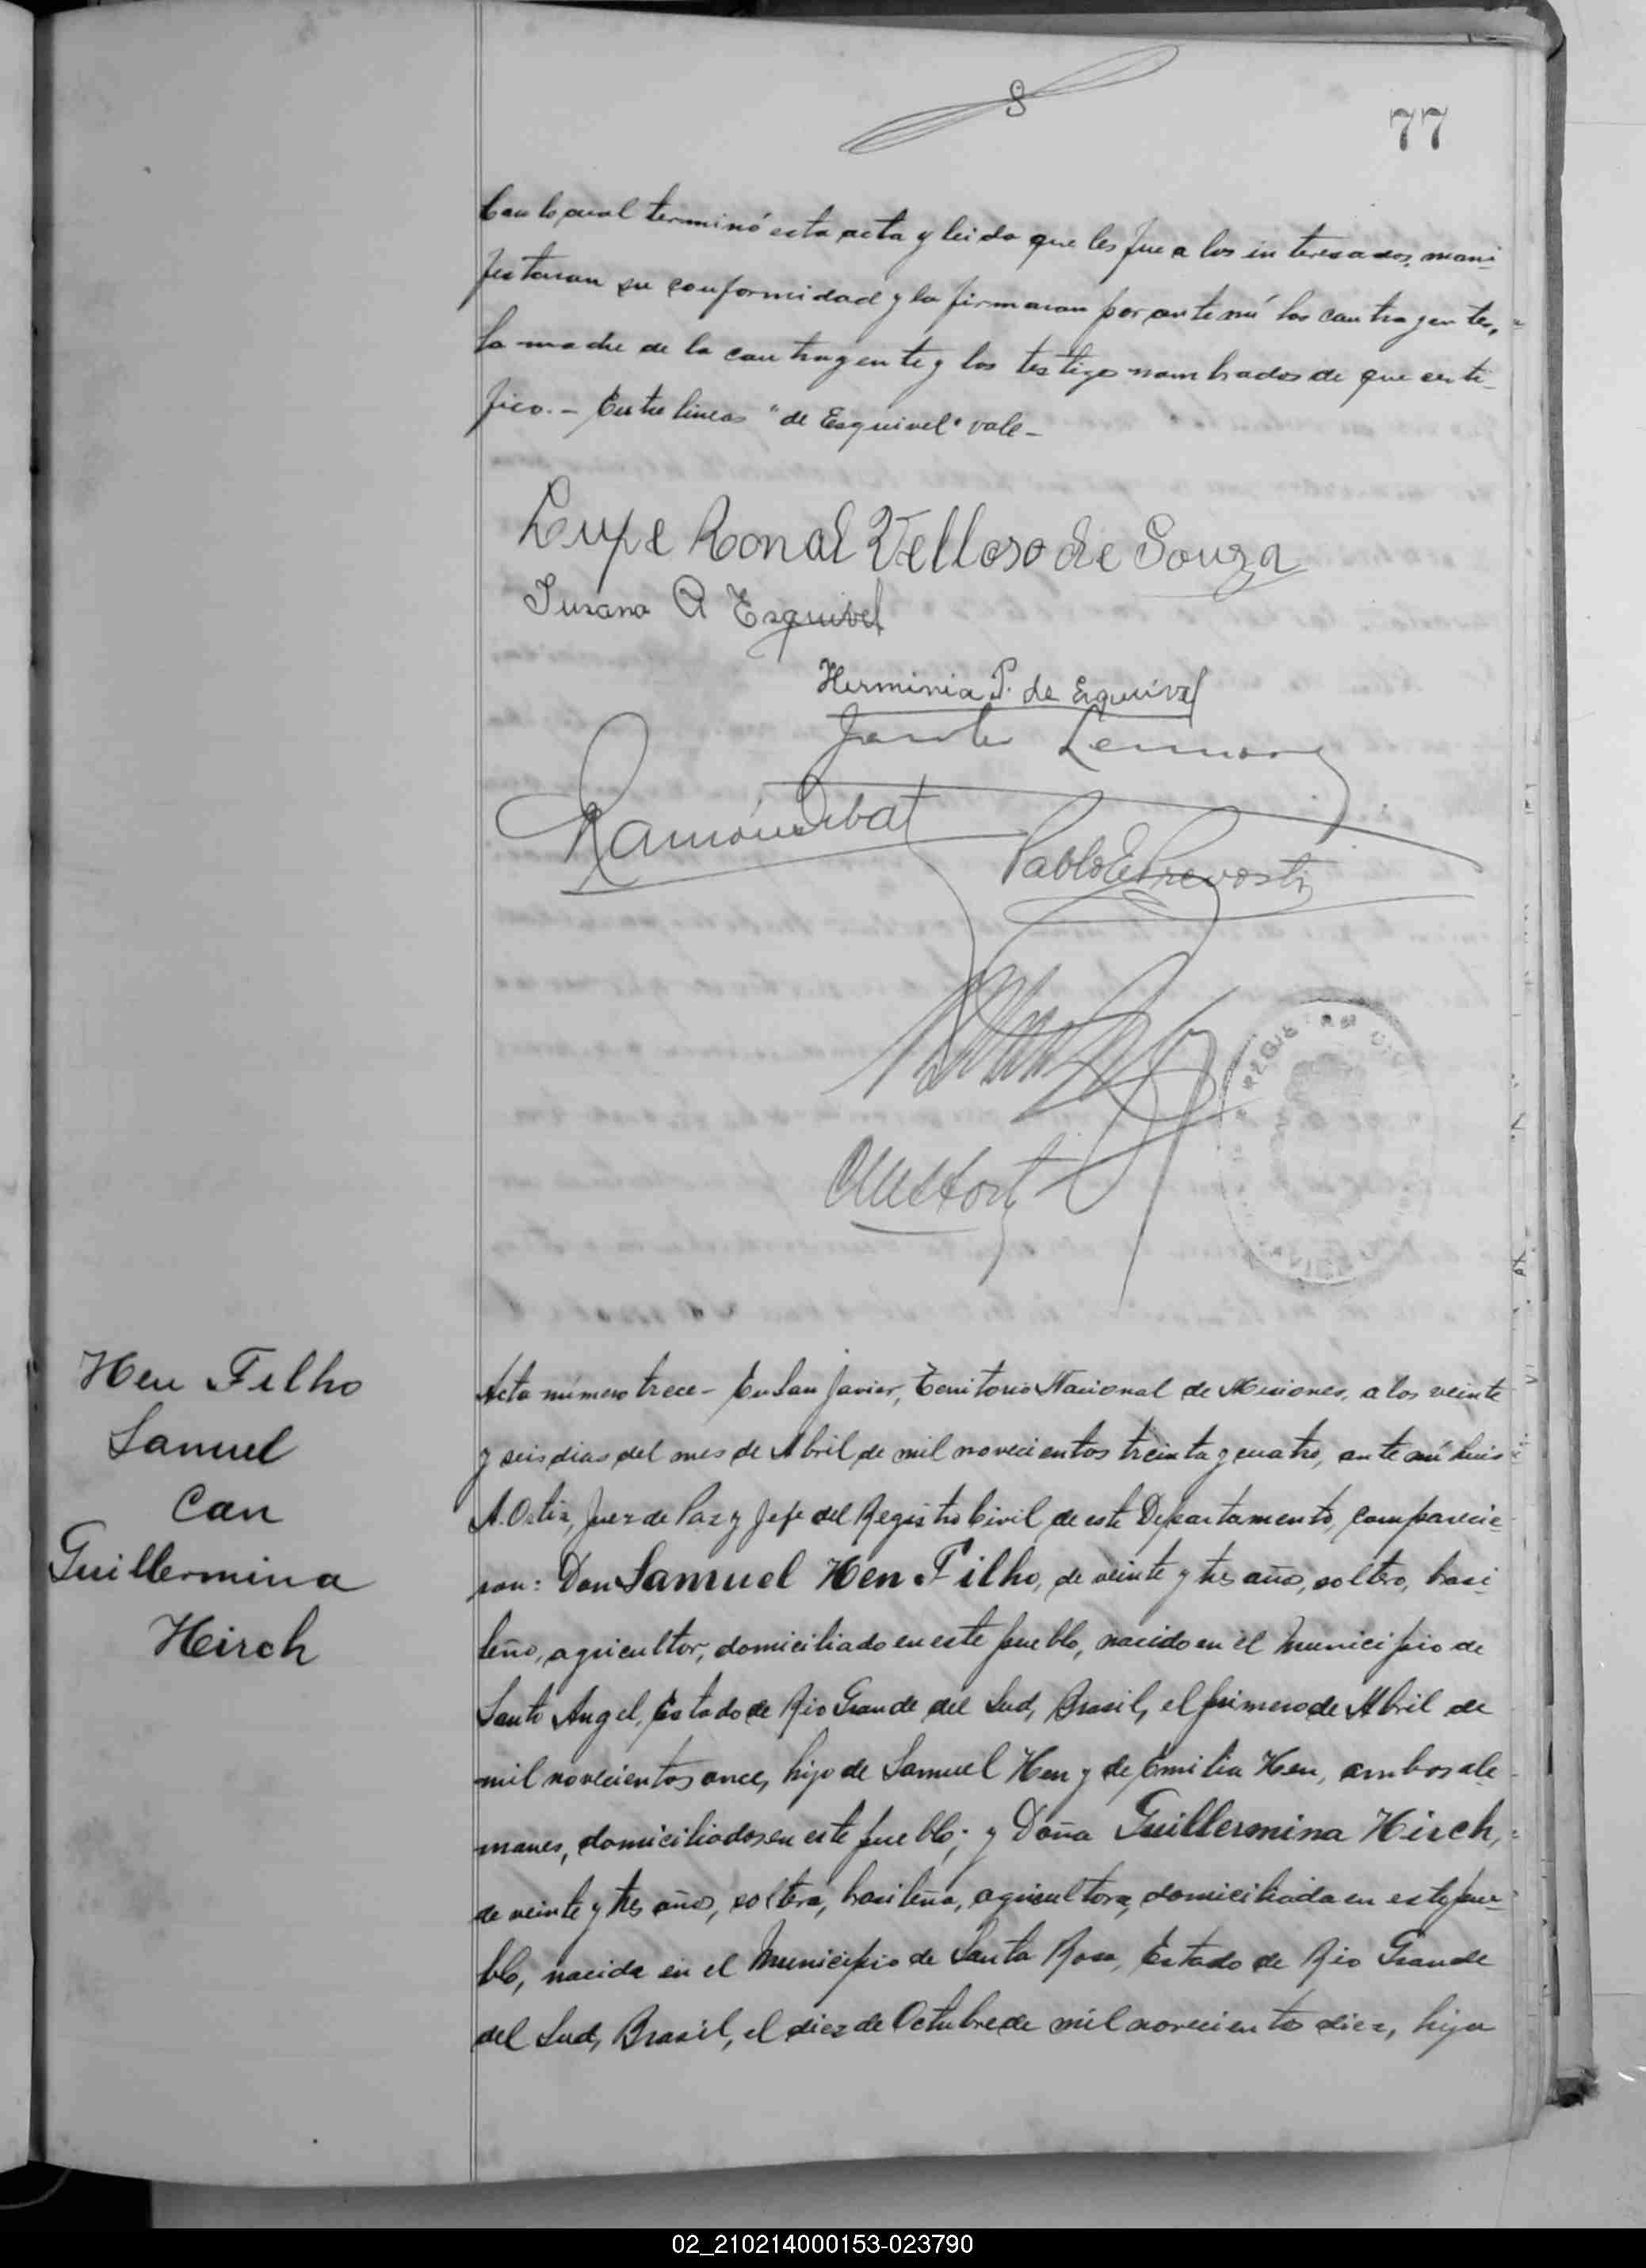 8
77
Con lo cual terminó esta acta y leida que les fue a los interesados, mani-
festaron su conformidad y la firmaron por ante mí los contrayentes,
la madre de la contrayente y los testigos nombrados de que certi-
fico.- Entre lineas "de Esquivel" vale-
Lupe Ronal Velloso de Souza
Susana A Esquivel
Herminia P. de Esquivel
Ramón
Pablo E Prevosti
REGISTRO CIVIL
Hen Filho
Samuel
Con
Guillermina
Hirch
Acta número trece- En San Javier, Territorio Nacional de Misiones, a los veinte
y seis dias del mes de Abril de mil novecientos treinta y cuatro, ante mí Luis
A. Ortiz, Juez de Paz y Jefe del Registro Civil de este Departamento, comparecie-
ron: Don Samuel Hen Filho, de veinte y tres años, soltero, brasi-
leño, agricultor, domiciliado en este pueblo, nacido en el Municipio de
Santo Angel, Estado de Rio Grande del Sud, Brasil, el primero de Abril de
mil novecientos once, hijo de Samuel Hen y de Emilia Hen, ambos ale-
manes, domiciliados en este pueblo; y Doña Guillermina Hirch,
de veinte y tres años, soltera, brasileña, agricultora, domiciliada en este pue-
blo, nacida en el Municipio de Santa Rosa, Estado de Rio Grande
del Sud, Brasil, el diez de Octubre de mil novecientos diez, hija
02_210214000153-023790